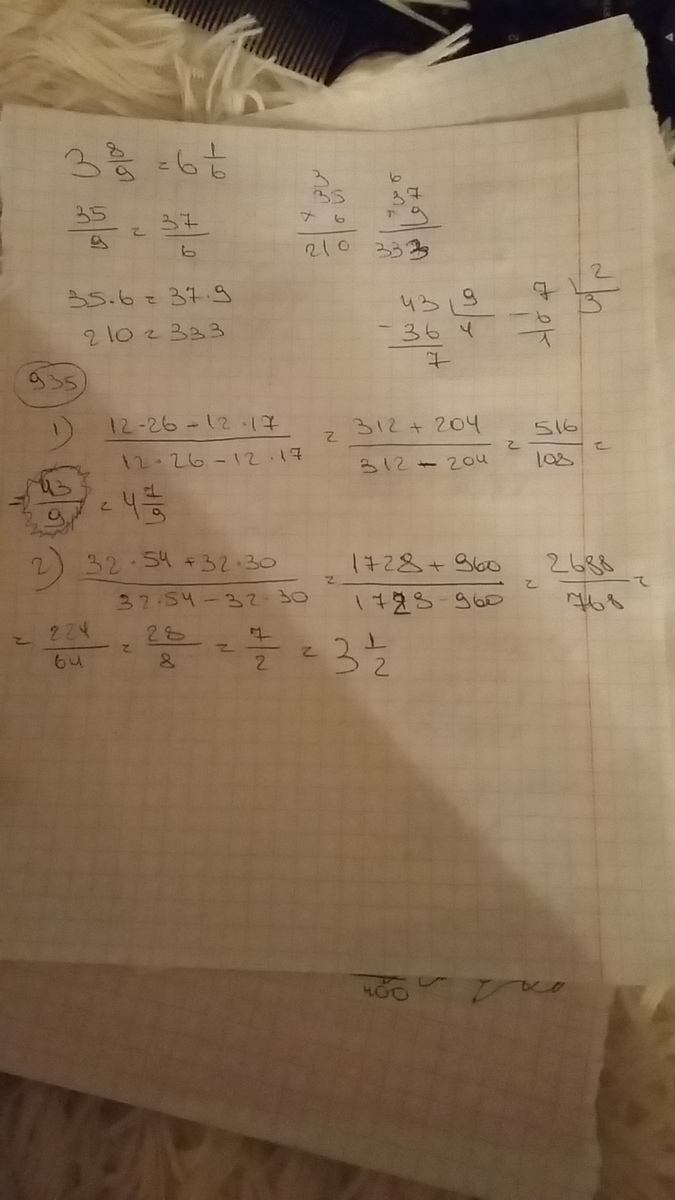 3 8/9 = 6 1/6
35/9 = 37/6
3
35
× 6
210
6
37
× 9
333
35·6=37·9
210=333
43 9
- 36 4
7
7 2
- 6 3
1
935
1) (12·26+12·17)/(12·26-12·17) = (312+204)/(312-204) = 516/108 =
= 43/9 = 4 7/9
2) (32·54+32·30)/(32·54-32·30) = (1728+960)/(1728-960) = 2688/768 =
= 224/64 = 28/8 = 7/2 = 3 1/2
400